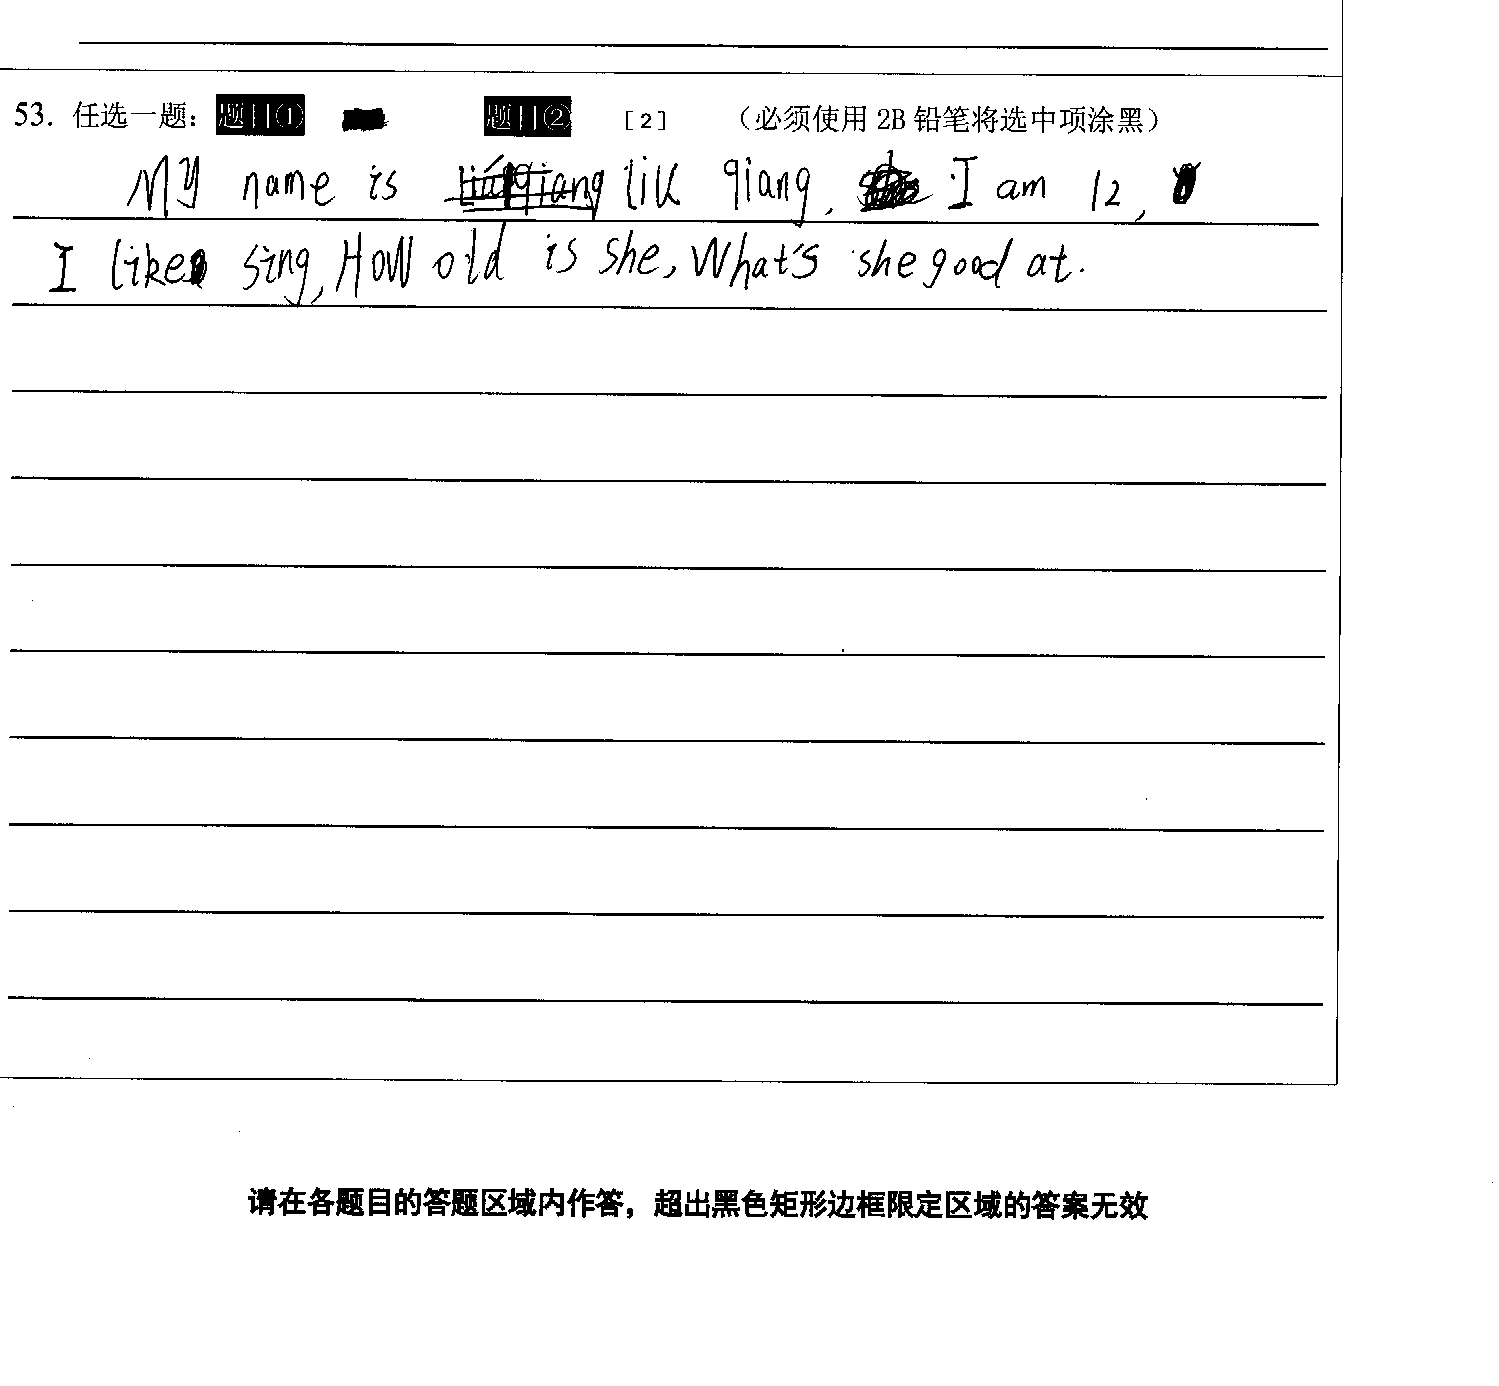 53. 任选一题： 题目① 题目② [2] （必须使用 2B 铅笔将选中项涂黑）
My name is lik qiang. I am 12,
I like sing, How old is she, What's she good at.
请在各题目的答题区域内作答，超出黑色矩形边框限定区域的答案无效